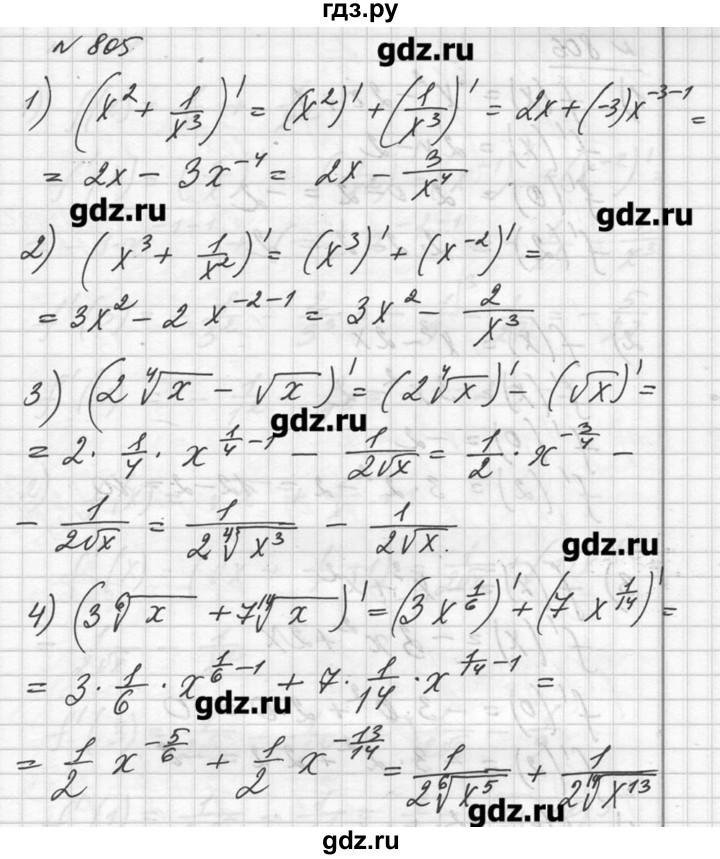 гдз.ру
№ 805
gdz.ru
1) (x² + 1/x³)' = (x²)' + (1/x³)' = 2x + (-3)x⁻³⁻¹ =
= 2x - 3x⁻⁴ = 2x - 3/x⁴
gdz.ru
gdz.ru
2) (x³ + 1/x²)' = (x³)' + (x⁻²)' =
= 3x² - 2 x⁻²⁻¹ = 3x² - 2/x³
3) (2 ⁴√x - √x)' = (2 ⁴√x)' - (√x)' =
gdz.ru
= 2 · 1/4 · x^(1/4 - 1) - 1/(2√x) = 1/2 · x^(-3/4) -
- 1/(2√x) = 1/(2 ⁴√x³) - 1/(2√x).
gdz.ru
4) (3 ⁶√x + 7 ¹⁴√x)' = (3 x^(1/6))' + (7 x^(1/14))' =
= 3 · 1/6 · x^(1/6 - 1) + 7 · 1/14 · x^(1/14 - 1) =
gdz.ru
= 1/2 x^(-5/6) + 1/2 x^(-13/14) = 1/(2 ⁶√x⁵) + 1/(2 ¹⁴√x¹³)
gdz.ru
gdz.ru